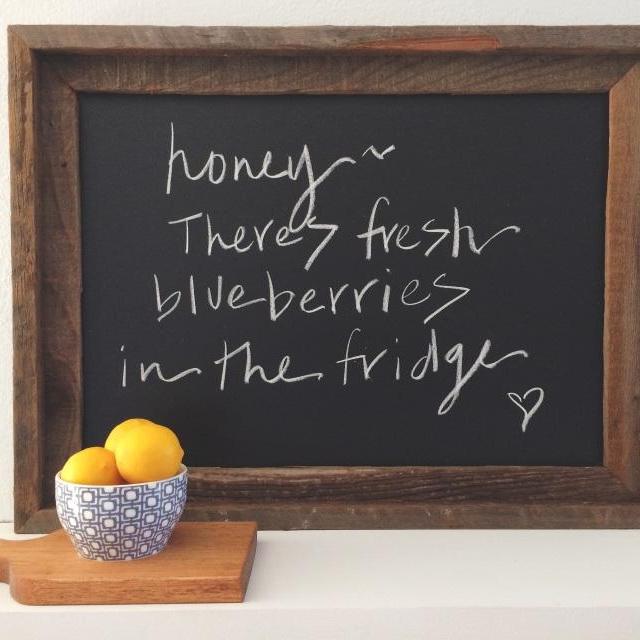 honey~
There's fresh
blueberries
in the fridge
♡